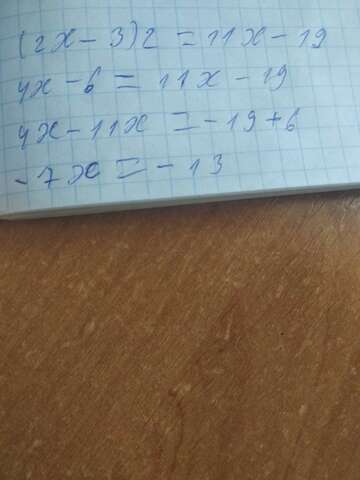 (2x - 3)2 = 11x - 19
4x - 6 = 11x - 19
4x - 11x = -19 + 6
-7x = -13